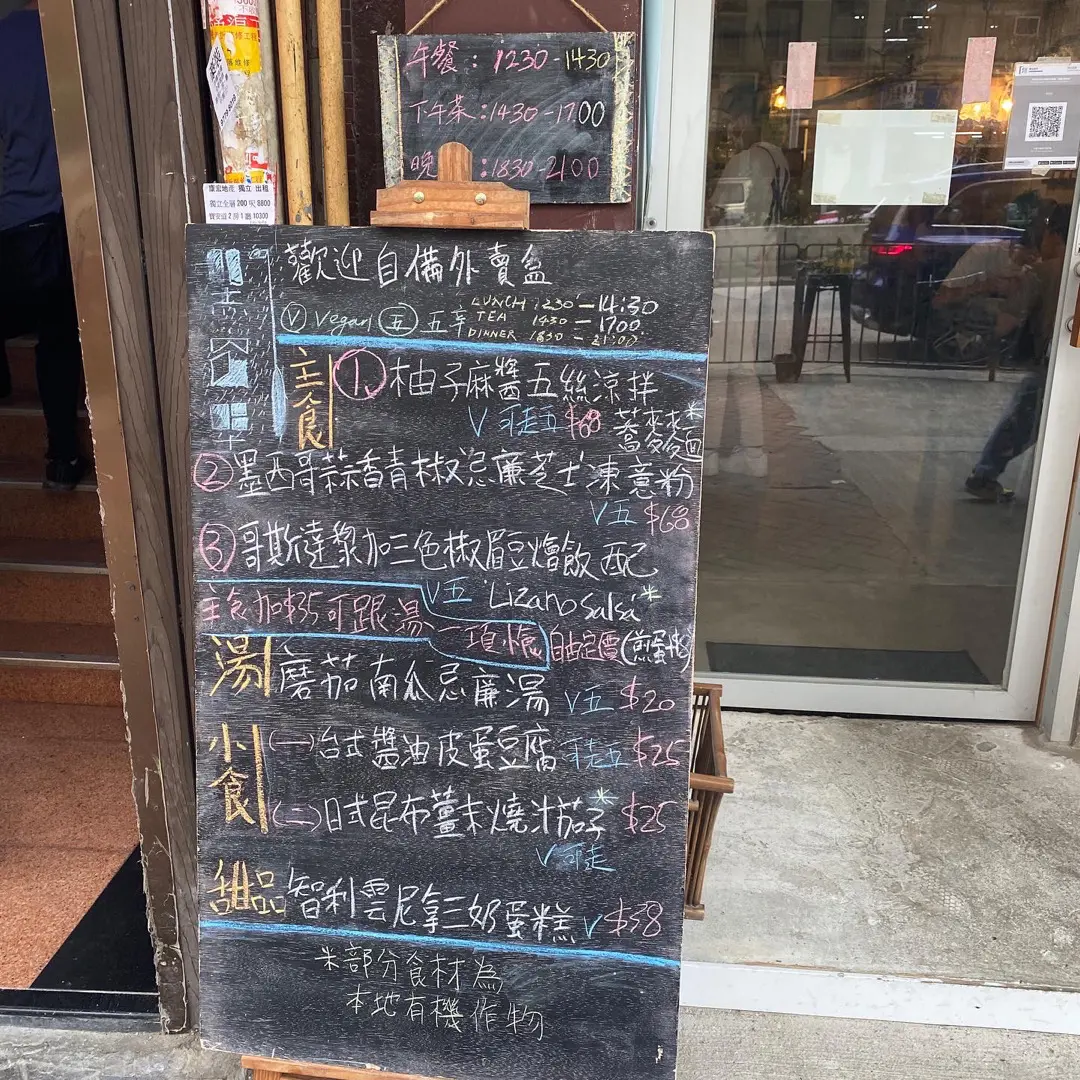 午餐：1230-1430
下午茶：1430-1700
晚：1830-2100
康宏地產 獨立 出租
獨立全層 200 呎 8800
2 房 1 廳 10300
歡迎自備外賣盒
Ⓥ Vegan ㊄ 五辛
LUNCH 1230-14:30
TEA 1430-1700
DINNER 1830-21:00
主食
① 柚子麻醬五絲涼拌
蕎麥麥麵*
V 可走五 $68
② 墨西哥蒜香青椒忌廉芝士凍意粉
V五 $68
③ 哥斯達黎加三色椒眉豆燴飯 配
V五 Lizano Salsa*
主食加$35可跟湯
一項
自由定價(煎蛋
湯 蘑茄南瓜忌廉湯 V五 $20
小食
(一)台式醬油皮蛋豆腐 可走五 $25
(二)日式昆布薑末燒汁茄子* $25
V 可走
甜品 智利雲尼拿三奶蛋糕 V $38
*部分食材為
本地有機作物